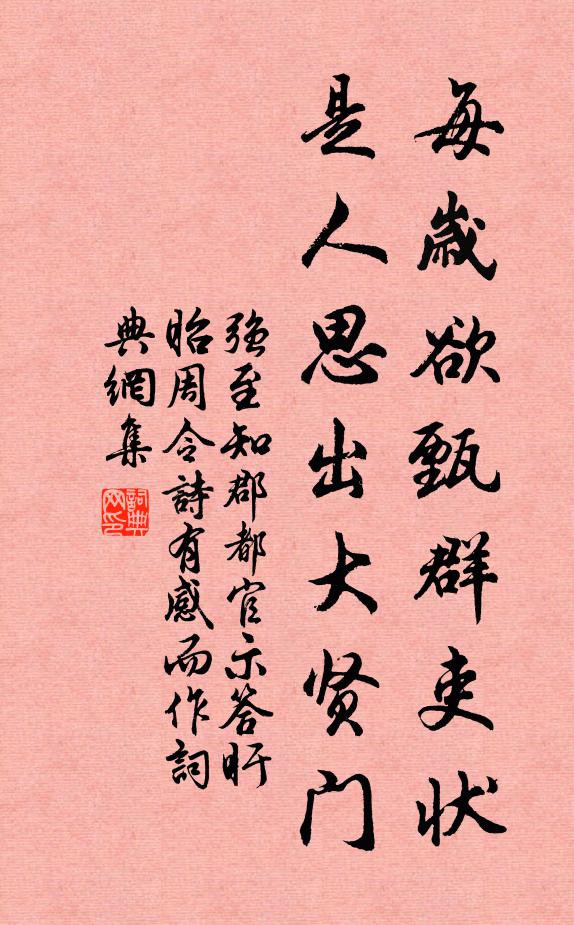 每歳欲甄群吏状
是人思出大贤门
强至知郡都官示答盱
眙周令詩有感而作詞
典網集
詞典网印